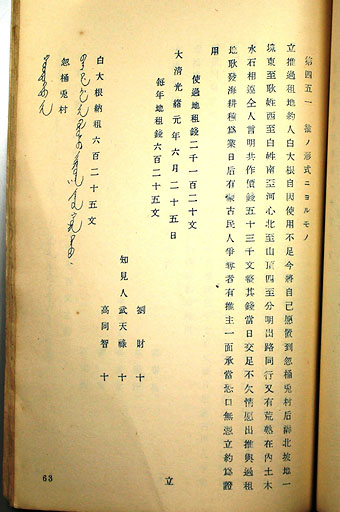 第四五一 推ノ形式ニヨルモノ
立推過租地約人白大根自因使用不足今將自己愿置到忽桶兎村后海北坡地一
塊東至耿姓西至白姓南至河心北至山頂四至分明出路同行又有荒熟在內土木
水石相連仝人言明共作價錢五十三千文整其錢當日交足不欠情愿出推與過租
地耿發海耕種爲業日后有蒙古民人爭奪者有推主一面承當恐口無憑立約爲證
用
使過地租錢二千一百二十文
每年地租錢六百二十五文
大清光緒元年六月二十五日
知見人
劉財十
武天祿十
高同智十
立
白大根納租六百二十五文
忽桶兎村
63